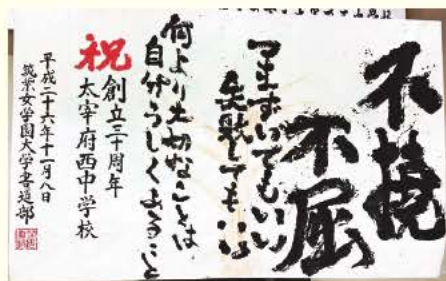 不撓
不屈
つまずいてもいい
失敗してもいい
何より大切なことは
自分らしくあること
祝
創立三十周年
太宰府西中学校
平成二十六年十一月八日
筑紫女学園大学書道部